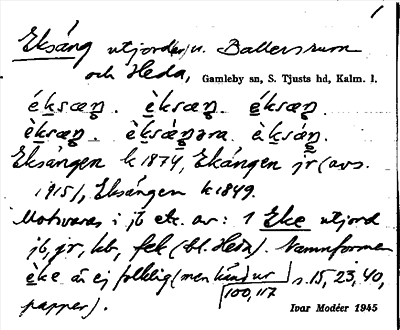 1
Eksäng utjord u. Ballersrum
och Heda, Gamleby sn, S. Tjusts hd, Kalm. l.
éksæŋ. èksæŋ. éksæŋ.
èksæŋ. èksæŋəra. èksáŋ.
Eksängen k 1874, Ekängen jr (avs.
1915), Eksängen k 1849.
Motsvaras i jb etc. av: 1 Eke utjord
jb, jr, kb, fek (bl. Heda). Namnformen
eke är ej folklig (men känd ur s. 15, 23, 40,
papper). 100, 117
Ivar Modéer 1945